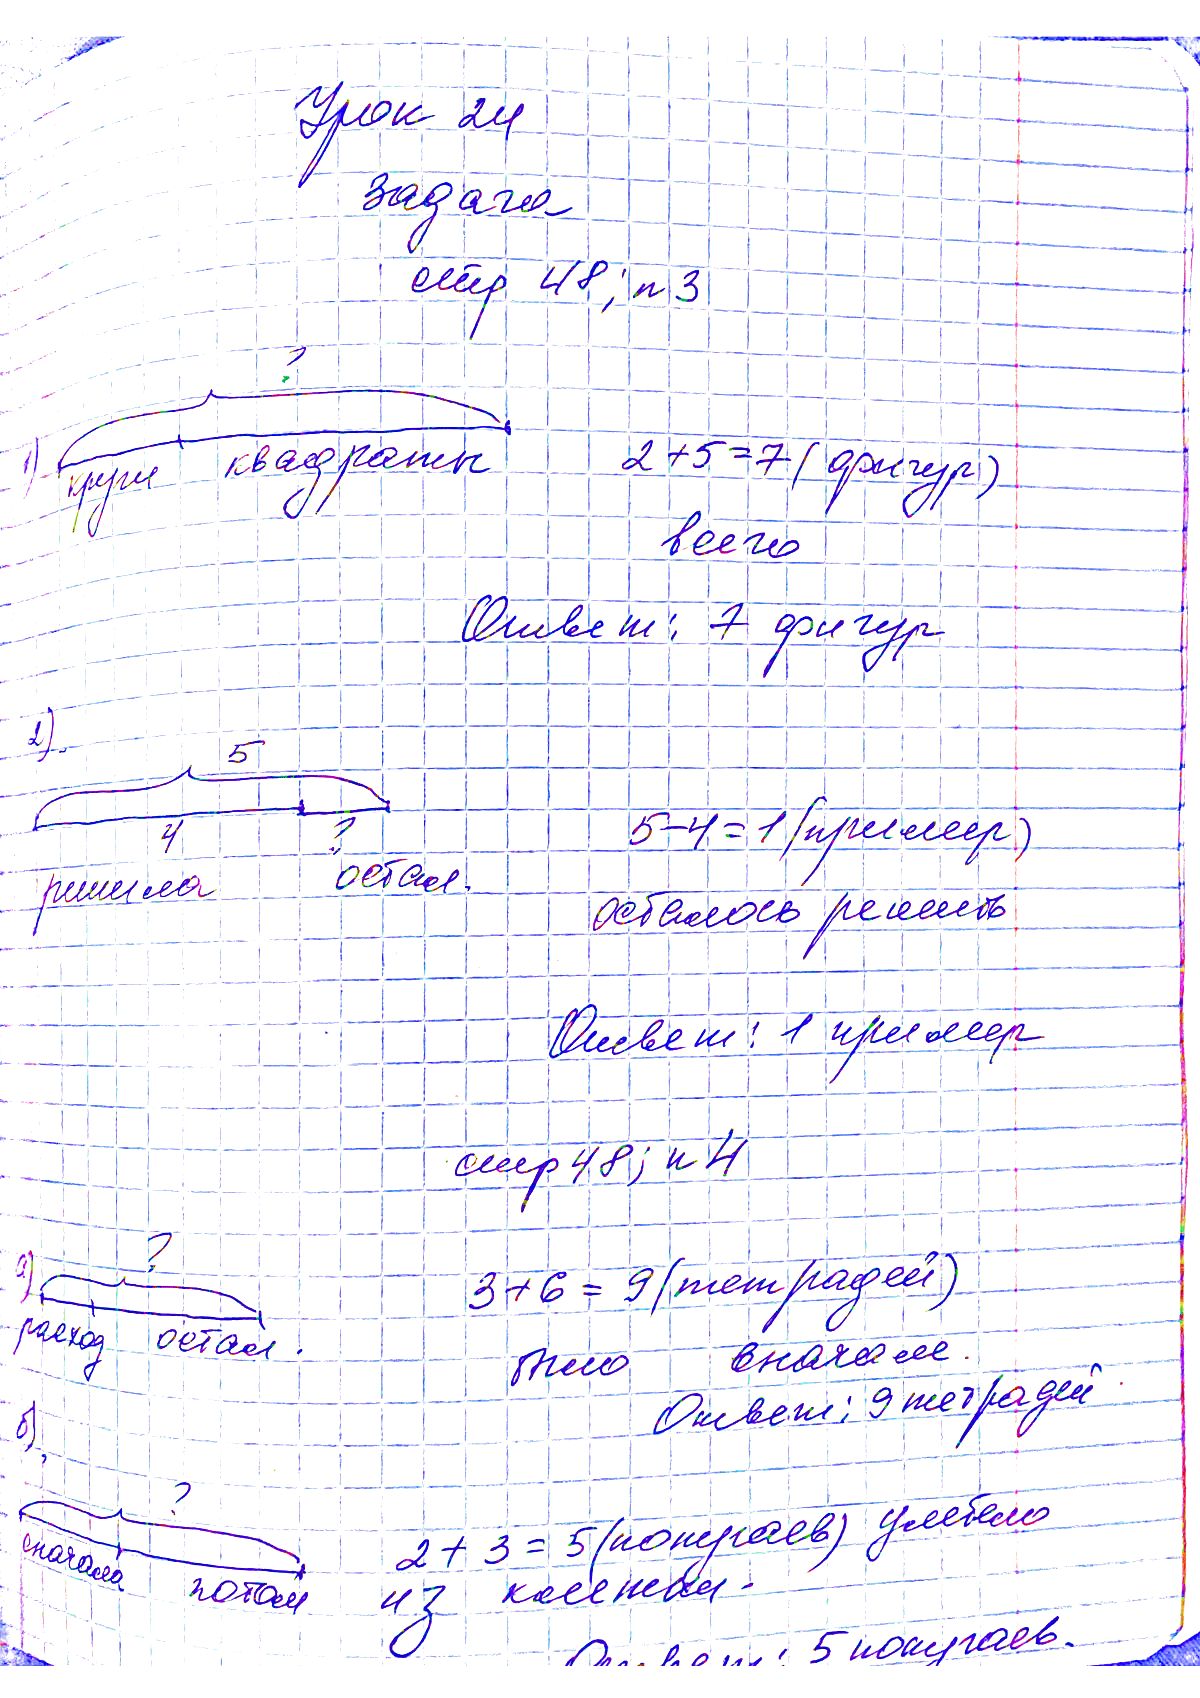 Урок 24
Задача
стр 48; n 3
?
1) круги квадраты 2+5=7 (фигур)
всего
Ответ: 7 фигур
2).
5
4 ? 5-4=1 (пример)
решила остал.
осталось решить
Ответ: 1 пример
стр 48; n 4
?
а) 3+6 = 9 (тетрадей)
расход остал.
было вначале.
Ответ: 9 тетрадей
б).
?
2+3=5 (попугаев) улетело
сначала потом из клетки.
Ответ: 5 попугаев.